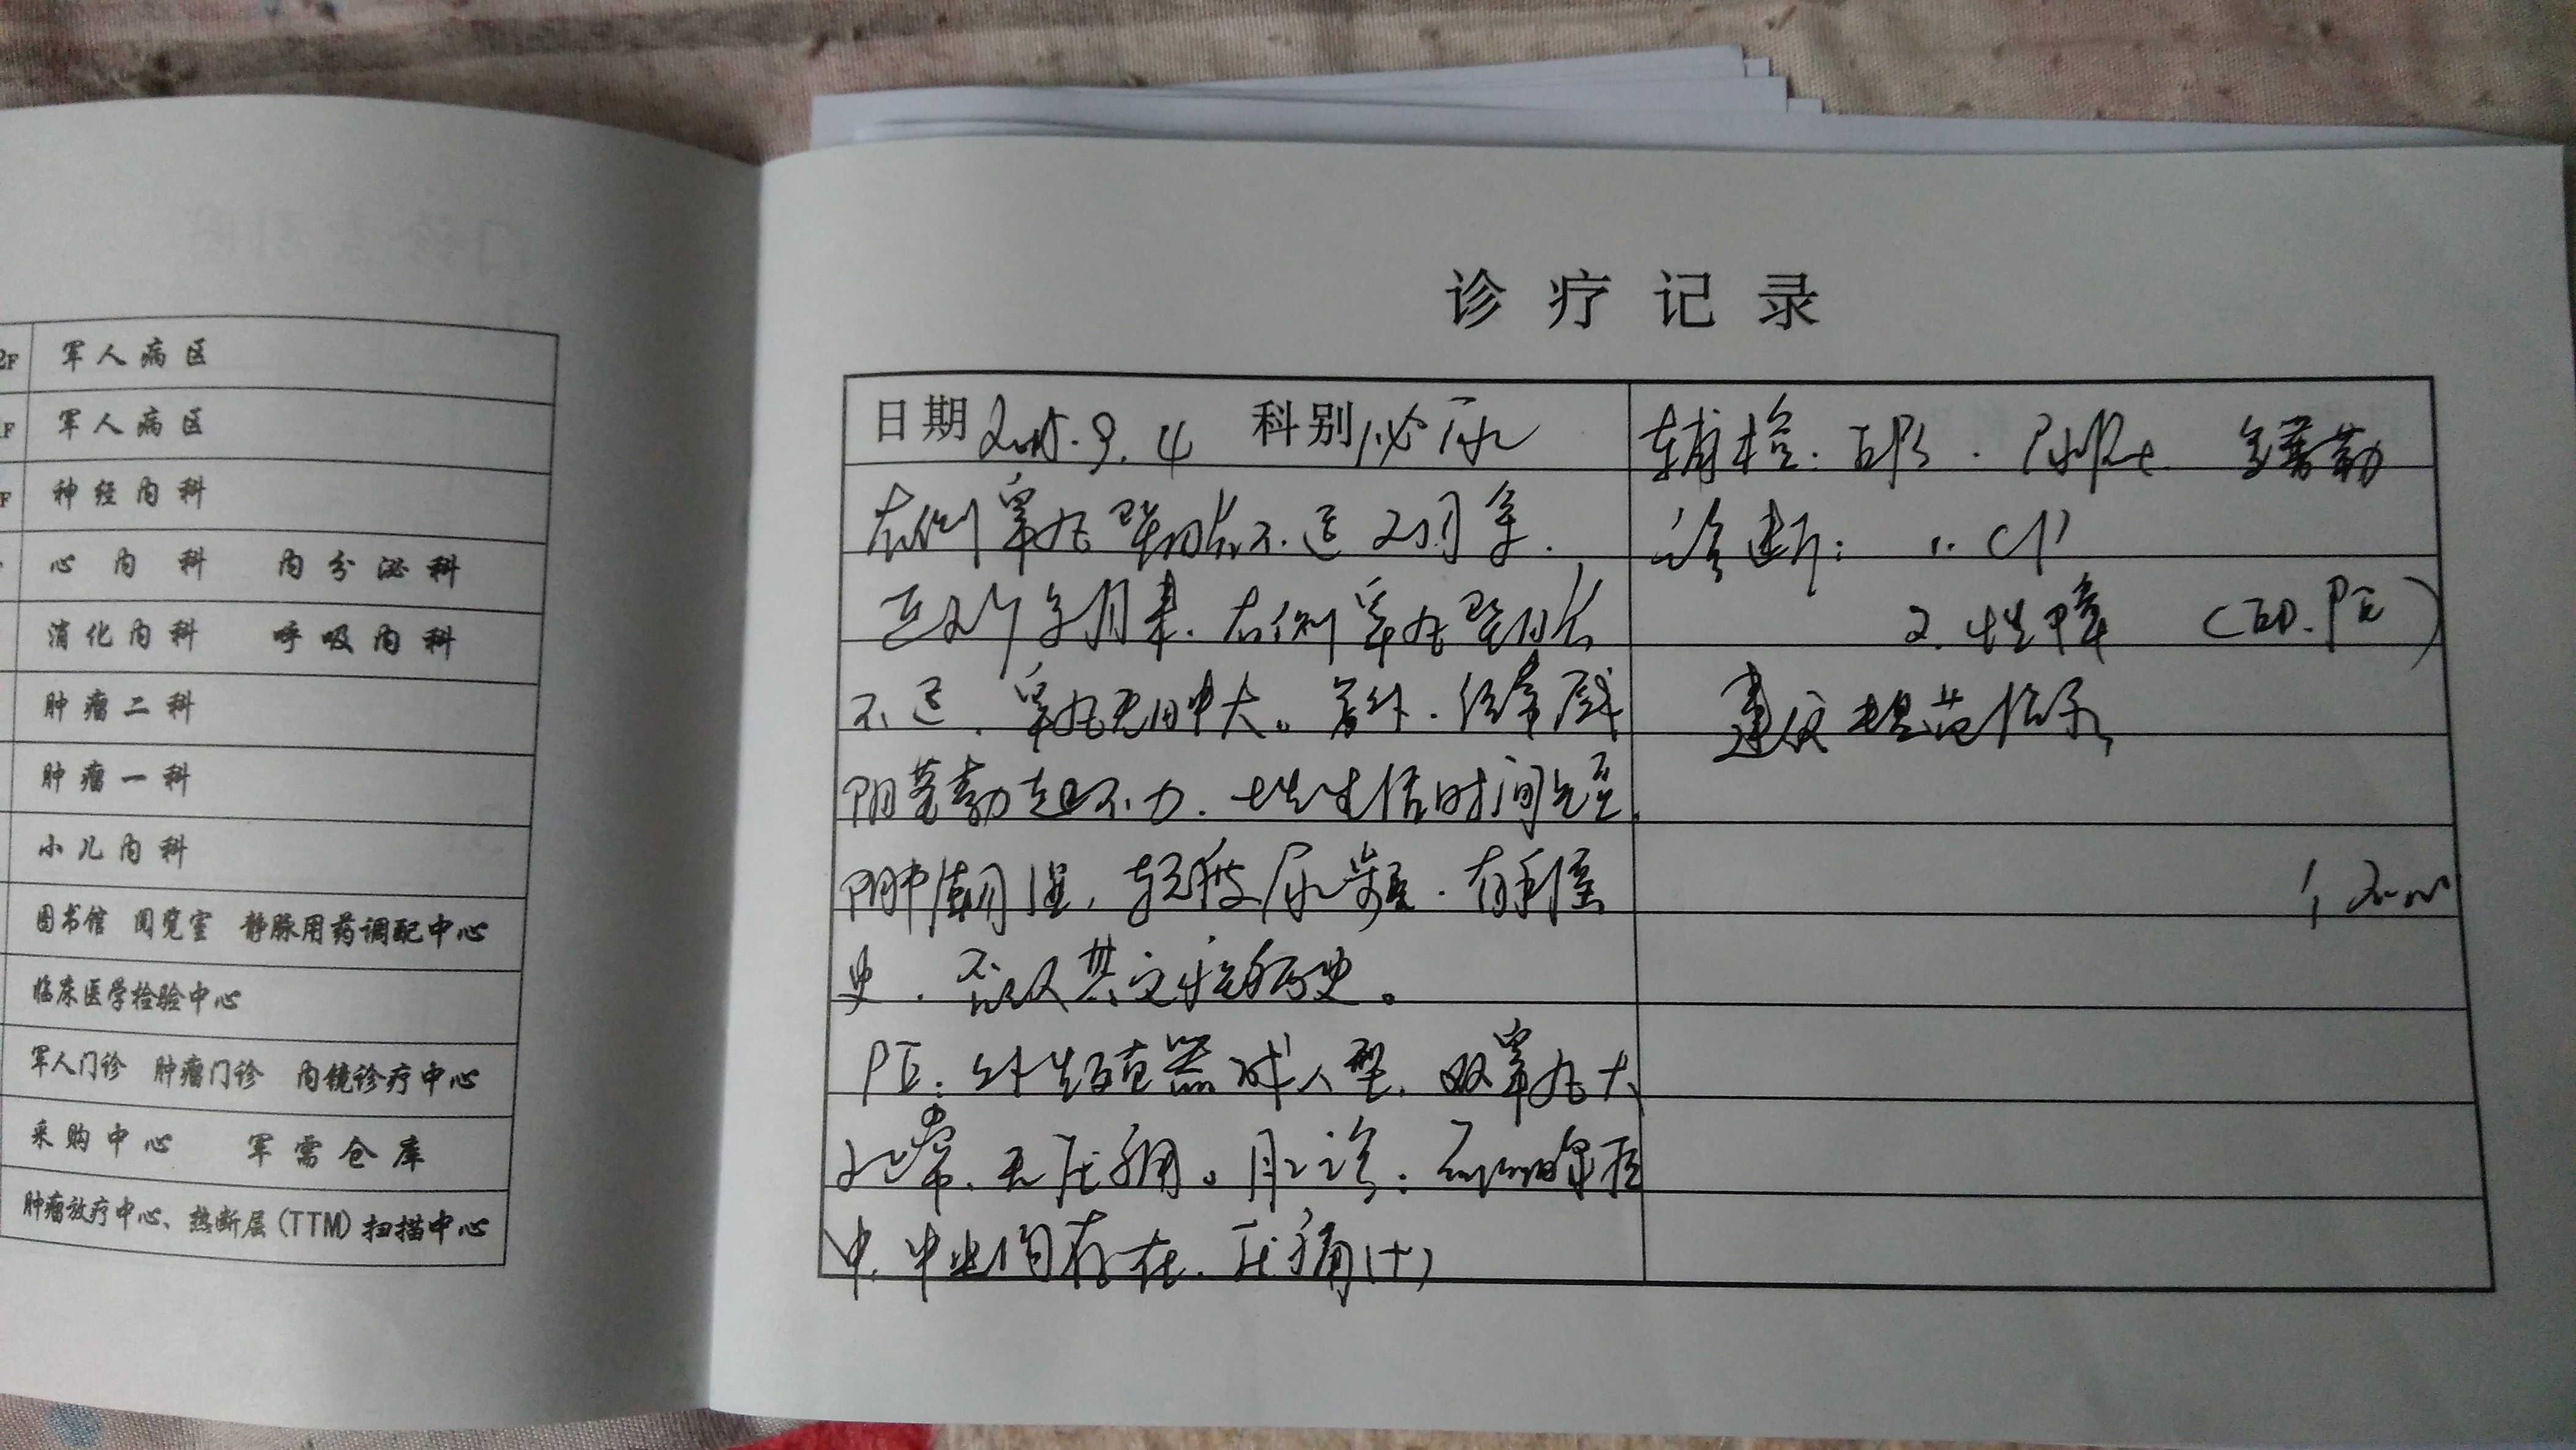 军人病区
军人病区
神经内科
心内科 内分泌科
消化内科 呼吸内科
肿瘤二科
肿瘤一科
小儿内科
图书馆 阅览室 静脉用药调配中心
临床医学检验中心
军人门诊 肿瘤门诊 内镜诊疗中心
采购中心 军需仓库
肿瘤放疗中心、热断层(TTM)扫描中心
诊疗记录
日期 2015.9.4 科别 泌尿
右侧睾丸坠胀不适2月余.
近2个多月来,右侧睾丸坠胀
不适,睾丸无肿大。另外,经常感
阴茎勃起不力,性生活时间短,
阴囊潮湿,轻微尿频,有手淫
史,否认其它病史。
PE:外生殖器成人型,双睾丸大
正常,无压痛。肛诊:前列腺
中,中央沟存在,压痛(+)
辅检:EPS.尿Rt
诊断:1.CP
2.性障 (ED.PE)
建议规范治疗